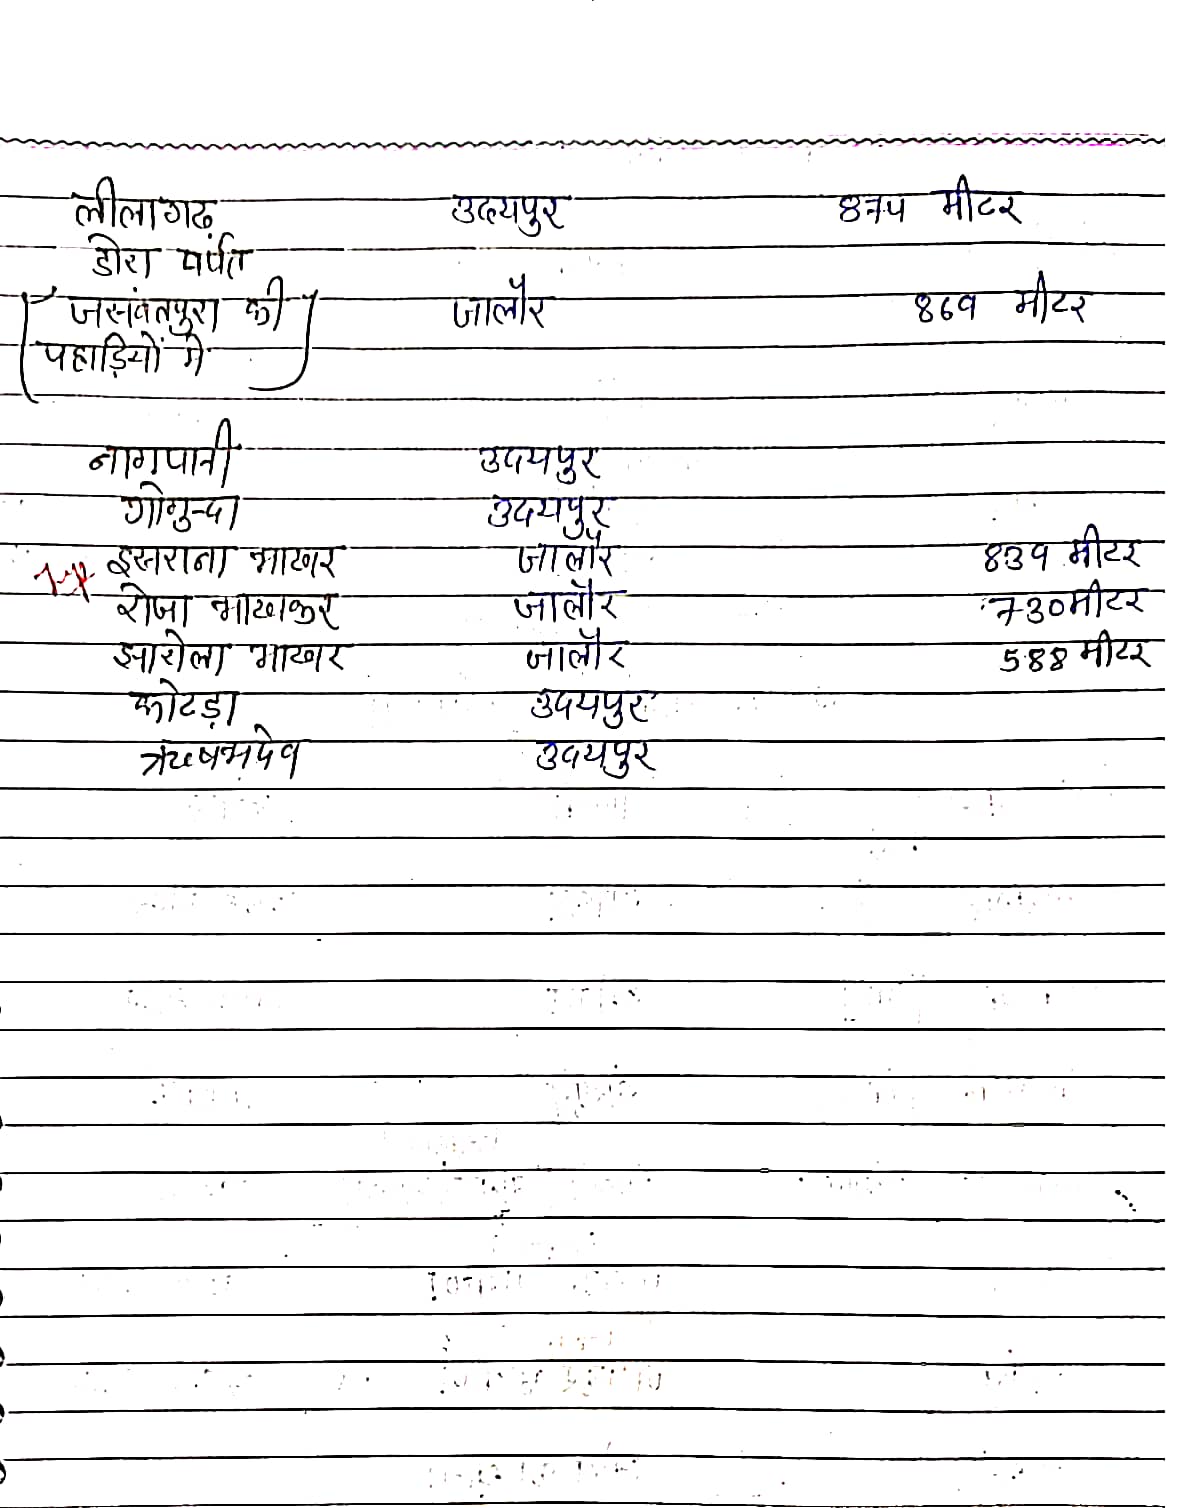 लीलागढ़ उदयपुर 874 मीटर
डोरा पर्वत
जसवंतपुरा की जालौर 869 मीटर
पहाड़ियों में
नागपानी उदयपुर
गोगुन्दा उदयपुर
इसराना भाखर जालौर 839 मीटर
रोजा भाखाकर जालौर 730 मीटर
झारोला भाखर जालौर 588 मीटर
कोटड़ा उदयपुर
ऋषभदेव उदयपुर